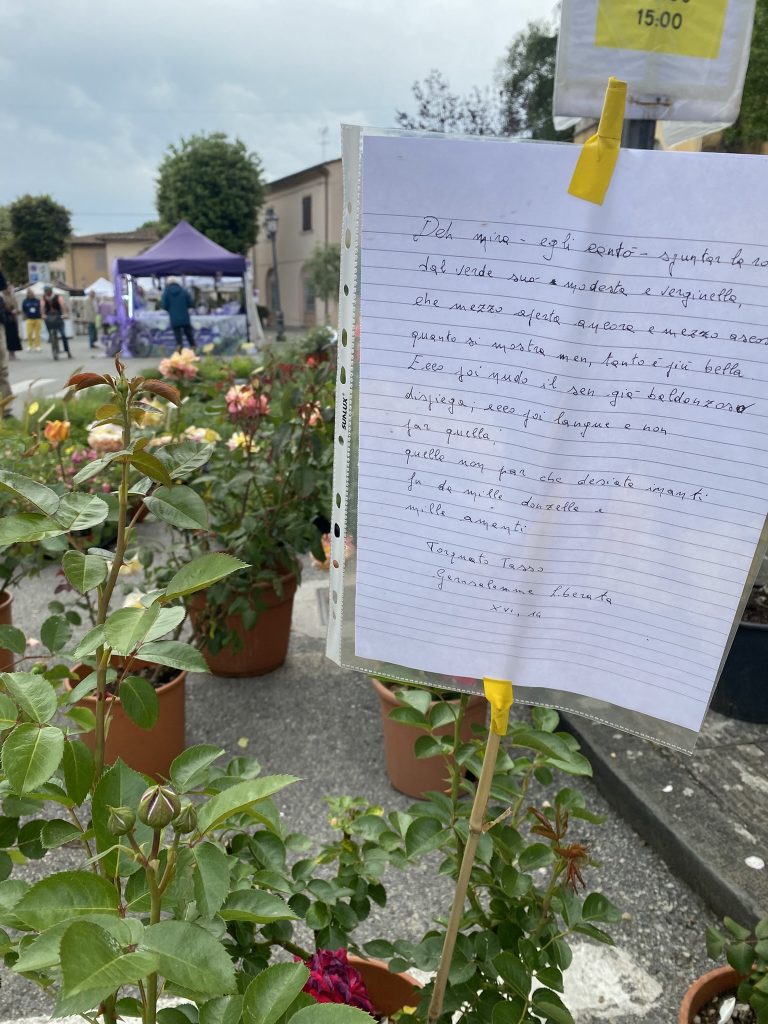 15:00
Deh mira - egli cantò - spuntar la ro
dal verde suo modesta e verginella,
che mezzo aperta ancora e mezzo asco
quanto si mostra men, tanto è più bella
Ecco poi nudo il sen già baldanzoso
dispiega, ecco poi langue e non
par quella,
quella non par che desiata inanti
fu da mille donzelle e
mille amanti
Torquato Tasso
Gerusalemme liberata
XVI, 14
SUNLUX